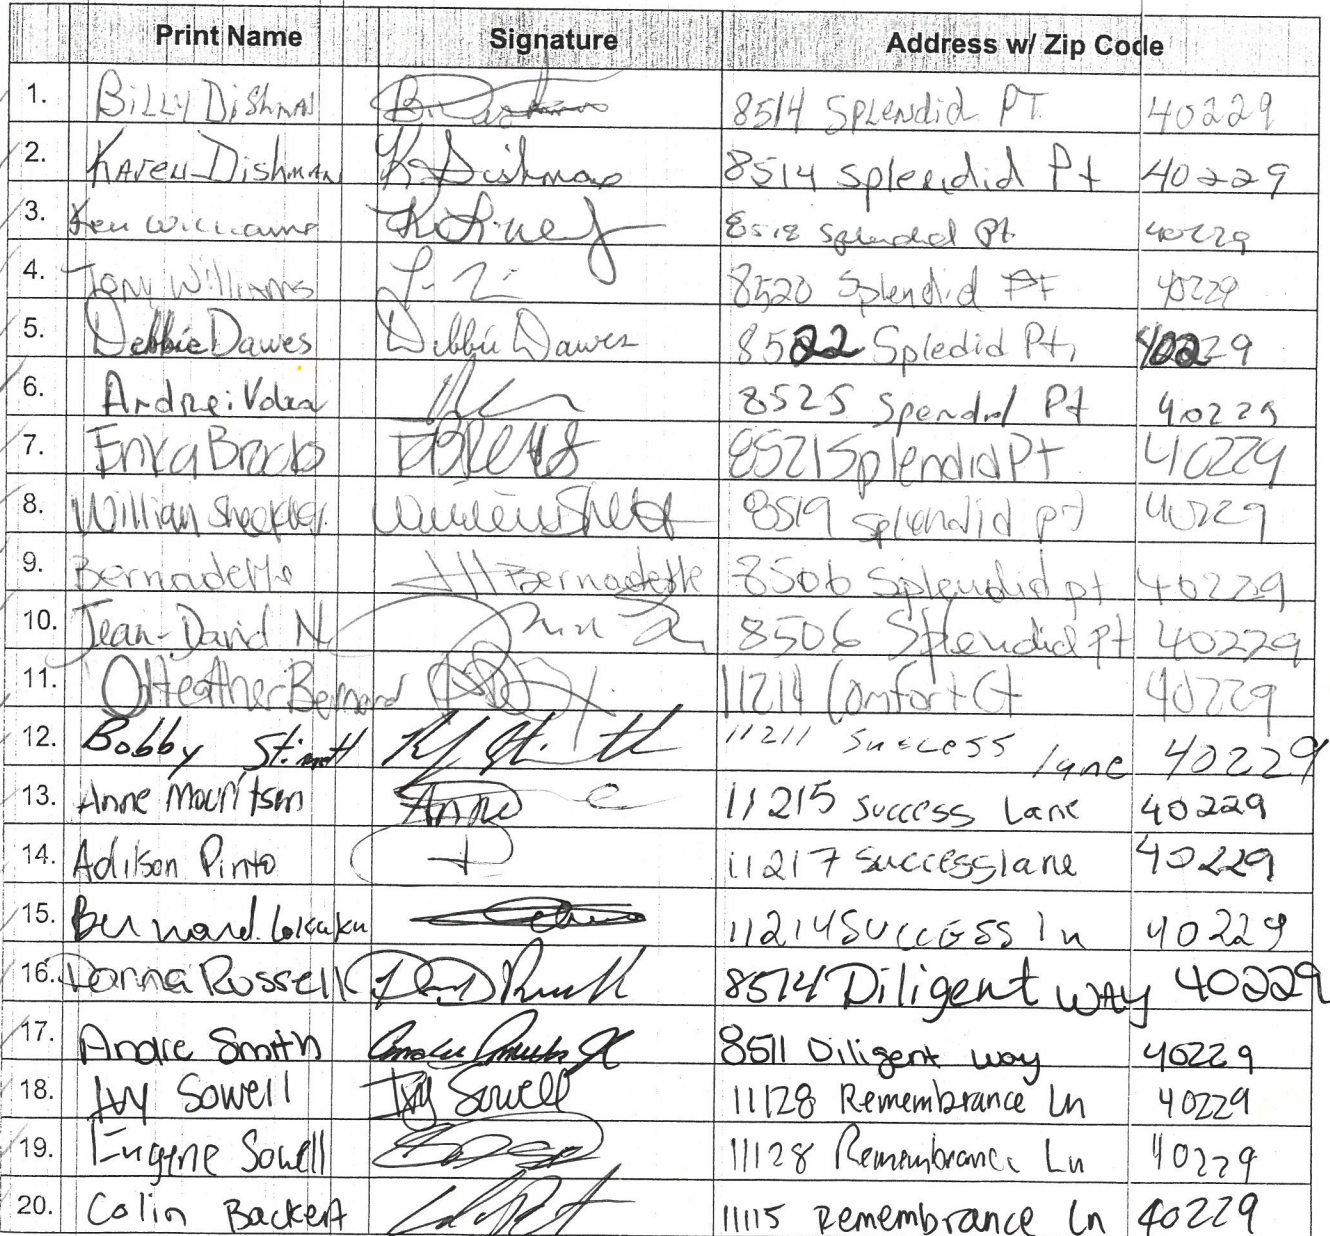 Print Name Signature Address w/ Zip Code
1. BiLLY DiShMAN B. 8514 SPLendid PT. 40229
2. KAren Dishman K. Dishman 8514 splendid Pt 40229
3. Ken Williams 8518 Splendid Pt 40229
4. Tony Williams 8520 Splendid PT 40229
5. Debbie Dawes Debbie Dawes 8522 Spledid Pt, 40229
6. Andrei 8525 Spendid Pt 40229
7. Erika Brooks 8521 Splendid Pt 40229
8. William 8519 splendid pt 40229
9. Bernadette Bernadette 8506 Splendid pt 40229
10. Jean-David N. 8506 Splendid Pt 40229
11. Heather Bernard 11214 Comfort Ct 40229
12. Bobby 11211 Success lane 40229
13. Anne Mouritsen Anne 11215 Success Lane 40229
14. Adilson Pinto 11217 Success lane 40229
15. Bernard. Lokaku 11214 SUCCESS ln 40229
16. Donna Russell 8514 Diligent WAY 40229
17. Andre Smith 8511 Diligent way 40229
18. Ivy Sowell Ivy Sowell 11128 Remembrance Ln 40229
19. Eugene Sowell 11128 Remembrance Ln 40229
20. Colin Backert 11115 Remembrance Ln 40229